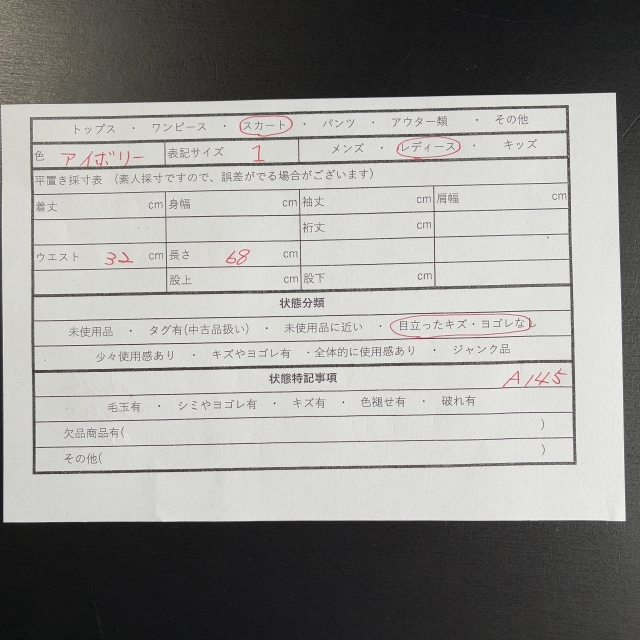 トップス ・ ワンピース ・ スカート ・ パンツ ・ アウター類 ・ その他
色 アイボリー 表記サイズ 1 メンズ ・ レディース ・ キッズ
平置き採寸表 （素人採寸ですので、誤差がでる場合がございます）
着丈 cm 身幅 cm 袖丈 cm 肩幅 cm
裄丈 cm
ウエスト 32 cm 長さ 68 cm
股上 cm 股下 cm
状態分類
未使用品 ・ タグ有(中古品扱い) ・ 未使用品に近い ・ 目立ったキズ・ヨゴレなし
少々使用感あり ・ キズやヨゴレ有 ・全体的に使用感あり ・ ジャンク品
状態特記事項 A145
毛玉有 ・ シミやヨゴレ有 ・ キズ有 ・ 色褪せ有 ・ 破れ有
欠品商品有( )
その他( )